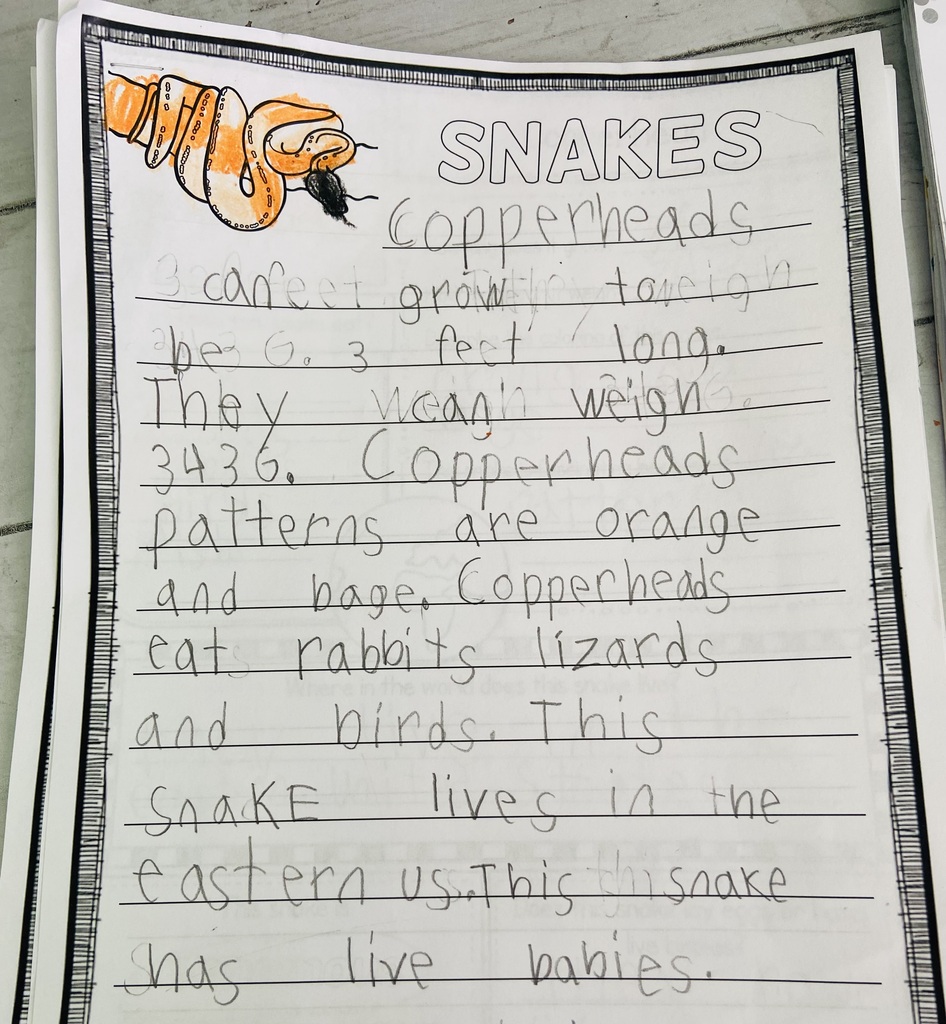 SNAKES
Copperheads
can grow to
be 3 feet long.
They can weigh
343G. Copperheads
patterns are orange
and bage. Copperheads
eats rabbits lizards
and birds. This
snaKE lives in the
eastern us. This snake
has live babies.